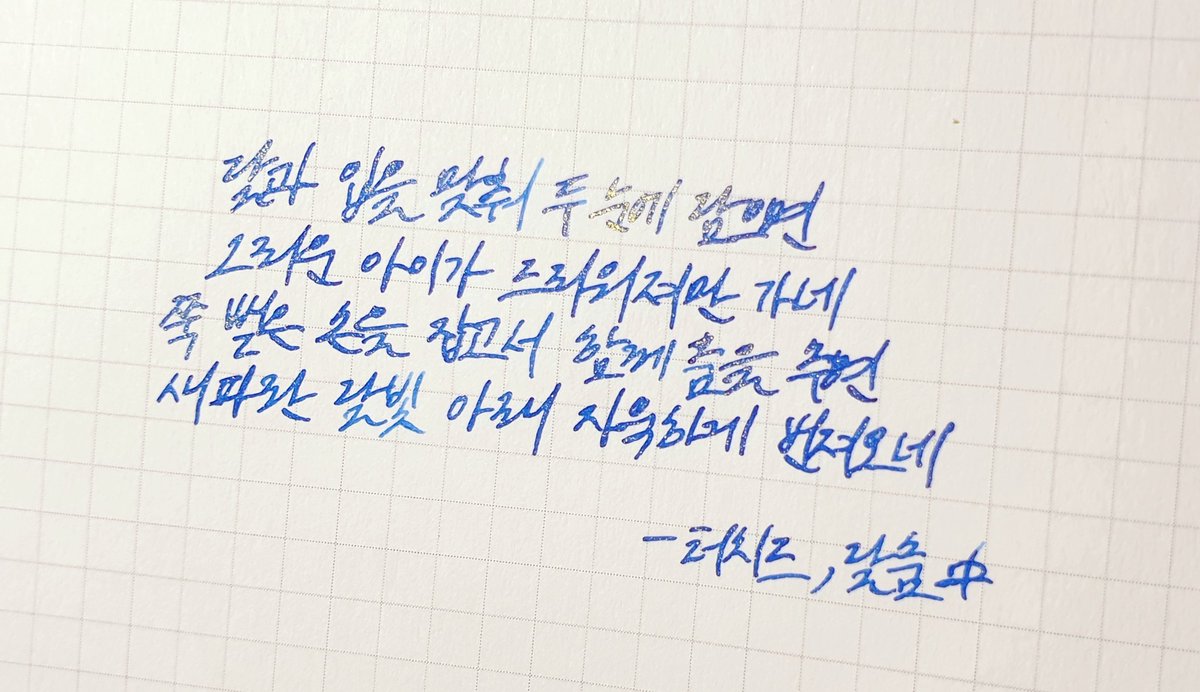 달과 입을 맞춰 두 눈에 담으면
그리운 아이가 드리워져만 가네
쭉 뻗은 손을 잡고서 함께 춤을 추면
새파란 달빛 아래 자욱하게 번져오네
-터치드, 달춤 中